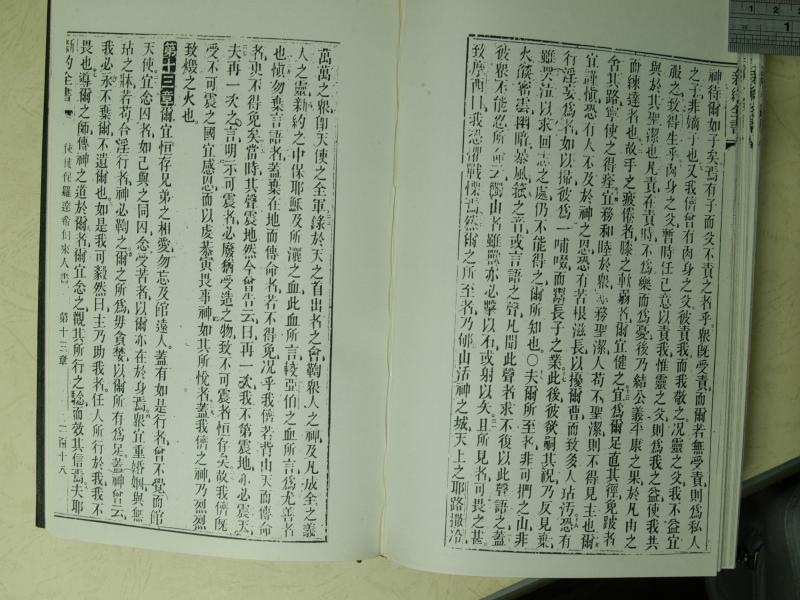 神待爾如子矣焉有子而父不責之者乎衆既受責而爾若無受責則爲私人
之子非嫡子也又我儕曾有肉身之父彼責我而我敬之况靈之父我不益宜
服之致得生乎肉身之父暫時任己意以責我惟靈之父則爲我之益使我共
與於其聖潔也凡責在責時不爲樂而爲憂後乃結公義平康之果於凡由之
而練達者也故手之疲倦者膝之軟弱者爾宜健之宜爲爾足直其徑免跛者
舍其路寧使之得痊宜務和睦於衆務聖潔人苟不聖潔則不得見主也爾
宜謹慎恐有人不及於神之恩恐有苦根滋長以擾爾曹而致多人玷汚恐有
行淫妄爲者如以掃彼爲一哺啜而鬻長子之業此後彼欲嗣其祝乃反見棄
雖哭泣以求回志之處仍不能得之爾所知也〇夫爾所至者非可捫之山非
火燄密雲幽暗暴風箛之音或言語之聲凡聞此聲者求不復以此聲語之蓋
彼衆不能忍所命云觸山者雖獸亦必擊以石或射以矢且所見者可畏之甚
致摩西曰我恐懼戰慄焉然爾之所至者乃郇山活神之城天上之耶路撒冷
萬萬之衆卽天使之全軍錄於天之首出者之會鞫衆人之神及凡成全之義
人之靈新約之中保耶穌及所灑之血此血所言較亞伯之血所言爲尤善者
也愼勿棄言語者蓋棄在地而傳命者若不得免况乎我儕若背由天而傳命
者更不得免矣當時其聲震地然今曾告云曰再一次我不第震地亦震天
夫再一次之言明示可震者必廢猶受造之物致不可震者恒存矣故我儕旣
受不可震之國宜感恩而以虔恭寅畏事神如其所悅者蓋我儕之神乃烈烈
致燬之火也
第十三章爾宜恒存兄弟之相愛勿忘及館遠人蓋有如是行者曾不覺而館
天使宜念囚者如己與之同囚念受苦者以爾亦在於身焉衆宜重婚姻與無
玷之牀若苟合淫行者神必鞫之爾之所爲毋貪婪以爾所有爲足蓋神曾云
我必永不棄爾不遺爾也如是我可毅然曰主乃助我者任人所行於我我不
畏也導爾之師傳神之道於爾者爾宜念之觀其所行之驗而效其信焉夫耶
新約全書 使徒保羅達希伯來人書 第十三章 二百十八